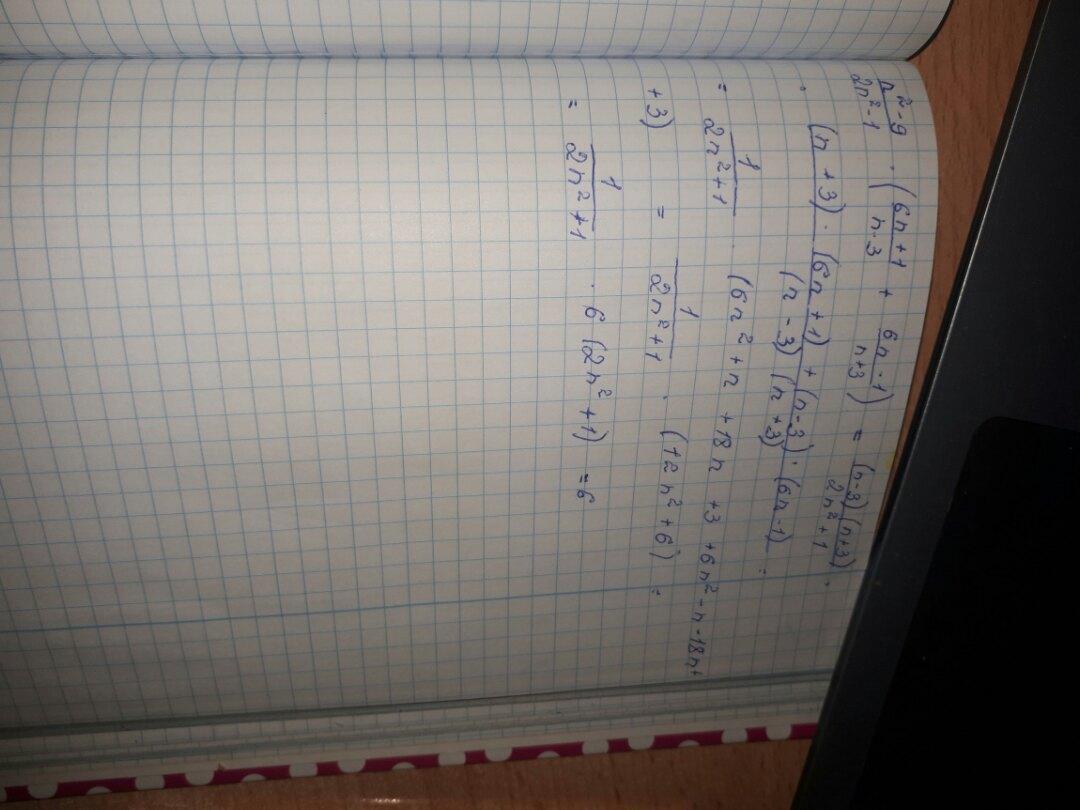 n²-9/2n²-1 · (6n+1/n-3 + 6n-1/n+3) = (n-3)(n+3)/2n²+1 ·
· (n+3)·(6n+1)+(n-3)·(6n-1)/(n-3)(n+3) =
= 1/2n²+1 · (6n²+n+18n+3+6n²-n-18n+
+3) = 1/2n²+1 · (12n²+6) =
= 1/2n²+1 · 6(2n²+1) = 6